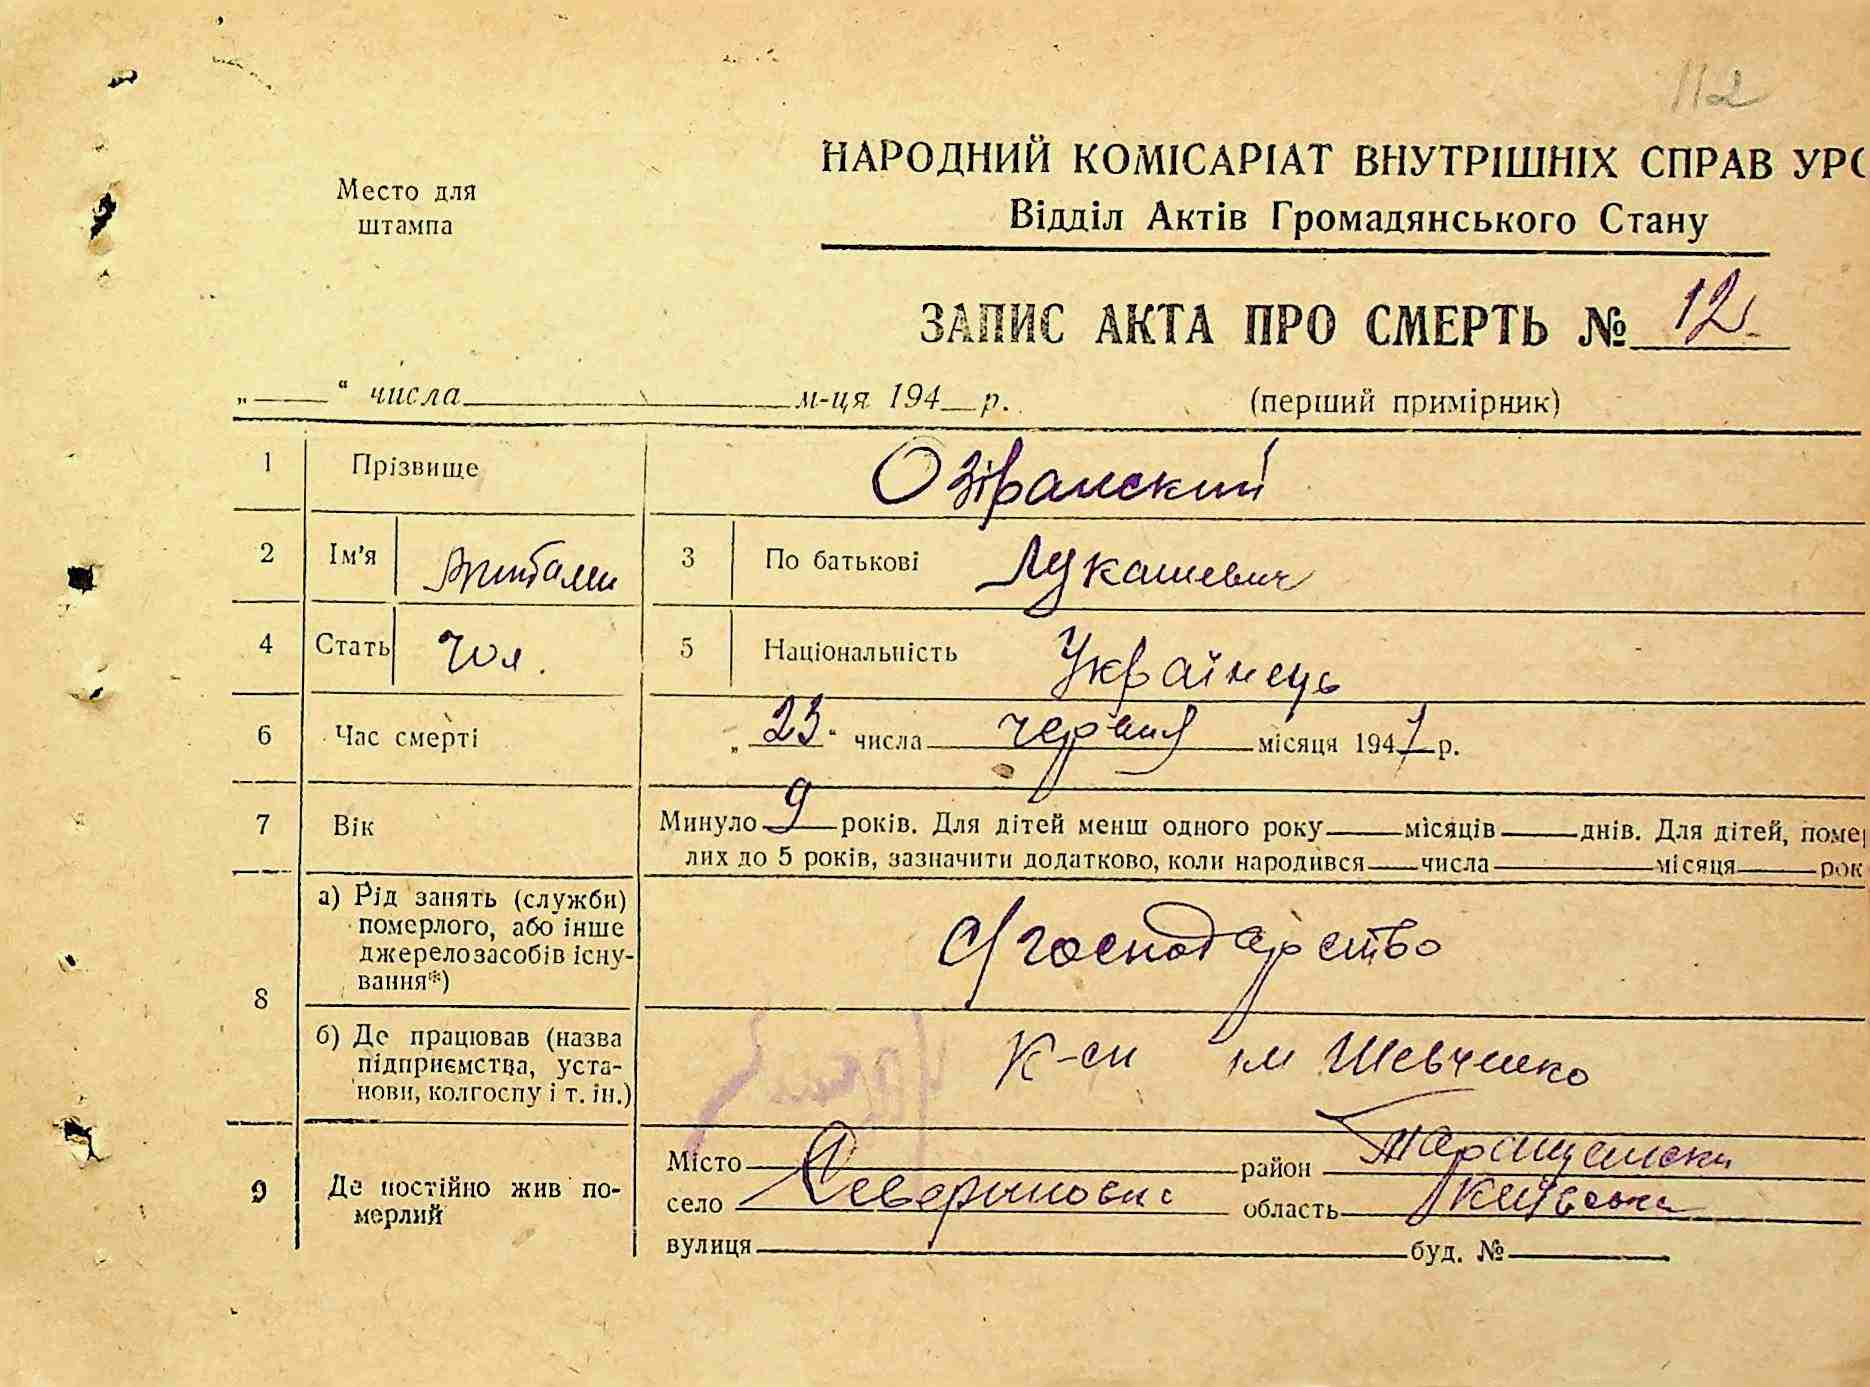 112
НАРОДНИЙ КОМІСАРІАТ ВНУТРІШНІХ СПРАВ УРС
Место для
штампа
Відділ Актів Громадянського Стану
ЗАПИС АКТА ПРО СМЕРТЬ № 12
„___“ числа ___ м-ця 194__р. (перший примірник)
1 Прізвище Озіранский
2 Ім'я 3 По батькові Лукашевич
4 Стать Чол. 5 Національність Українець
6 Час смерті „23“ числа червня місяця 1941 р.
7 Вік Минуло 9 років. Для дітей менш одного року ___ місяців ___ днів. Для дітей, помер
лих до 5 років, зазначити додатково, коли народився ___ числа ___ місяця ___ рок
8 а) Рід занять (служби)
померлого, або інше
джерело засобів існу-
вання*)
с/господарство
б) Де працював (назва
підприємства, уста-
нови, колгоспу і т. ін.)
К-сп ім Шевченко
9 Де постійно жив по-
мерлий
Місто ___ район Таращанський
село Севериновка область Київська
вулиця ___ буд. № ___